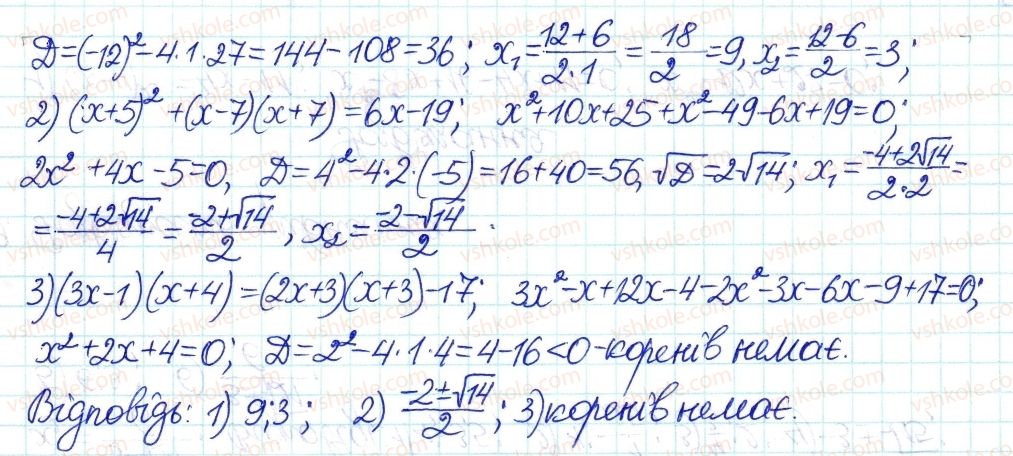 Д=(-12)²-4·1·27=144-108=36; x₁=(12+6)/(2·1)=18/2=9, x₂=(12-6)/2=3;
2) (x+5)²+(x-7)(x+7)=6x-19; x²+10x+25+x²-49-6x+19=0;
2x²+4x-5=0, Д=4²-4·2·(-5)=16+40=56, √Д=2√14; x₁=(-4+2√14)/(2·2)=
=(-4+2√14)/4=(-2+√14)/2, x₂=(-2-√14)/2.
3)(3x-1)(x+4)=(2x+3)(x+3)-17; 3x²-x+12x-4-2x²-3x-6x-9+17=0;
x²+2x+4=0; Д=2²-4·1·4=4-16<0-коренів немає.
Відповідь: 1) 9;3; 2) (-2±√14)/2; 3)коренів немає.